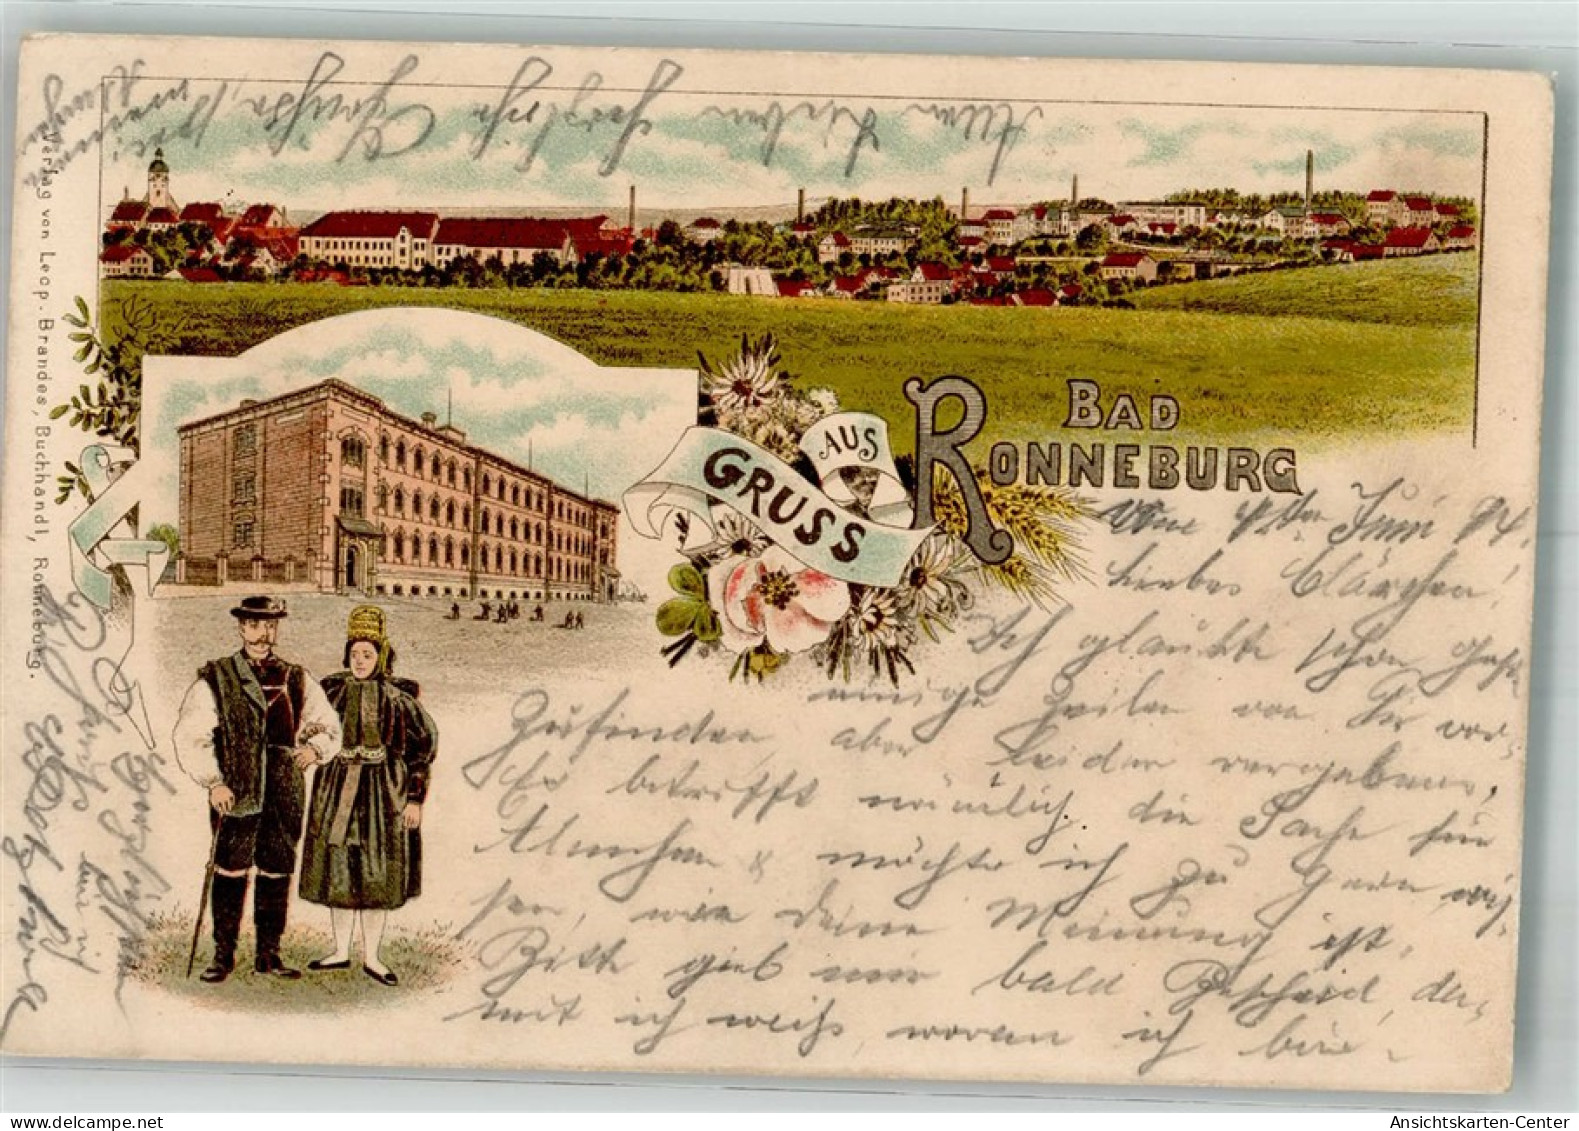 Allen Lieben herzliche Grüße,
AUS
GRUSS
BAD
RONNEBURG
Juni 04.
Liebes Clärchen!
Ich glaubte schon
einige Zeilen von Dir vor-
zufinden, aber leider vergebens.
Es betrifft nämlich die Sache für
& möchte ich zu gern wis-
sen, wie deine Meinung ist.
Bitte gieb mir bald Bescheid, da-
mit ich weiß, woran ich bin.
Verlag von Leop. Brandes, Buchhandl, Ronneburg.
delcampe.net
Ansichtskarten-Center